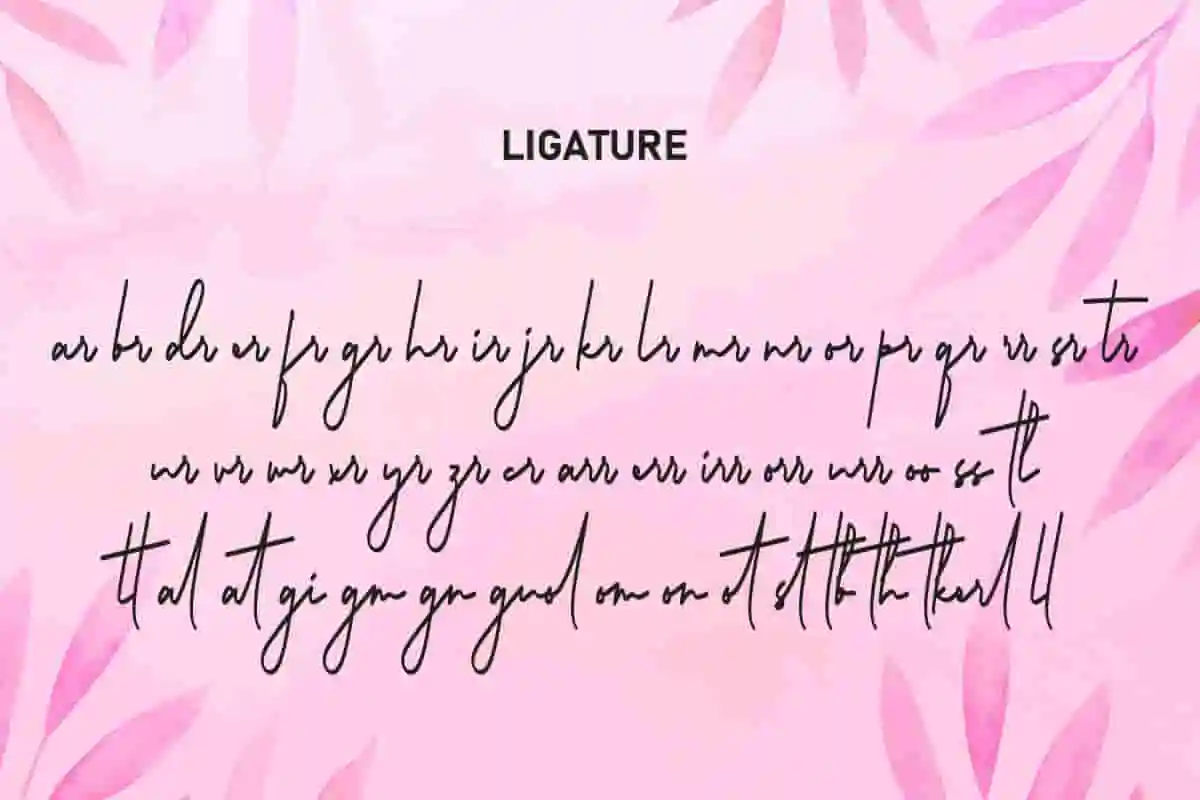 LIGATURE
ar br dr er fr gr hr ir jr kr lr mr nr or pr qr rr sr tr
ur vr wr xr yr zr cr arr err irr orr urr oo ss tl
tt al at gi gm gn om on ot st tb th ll